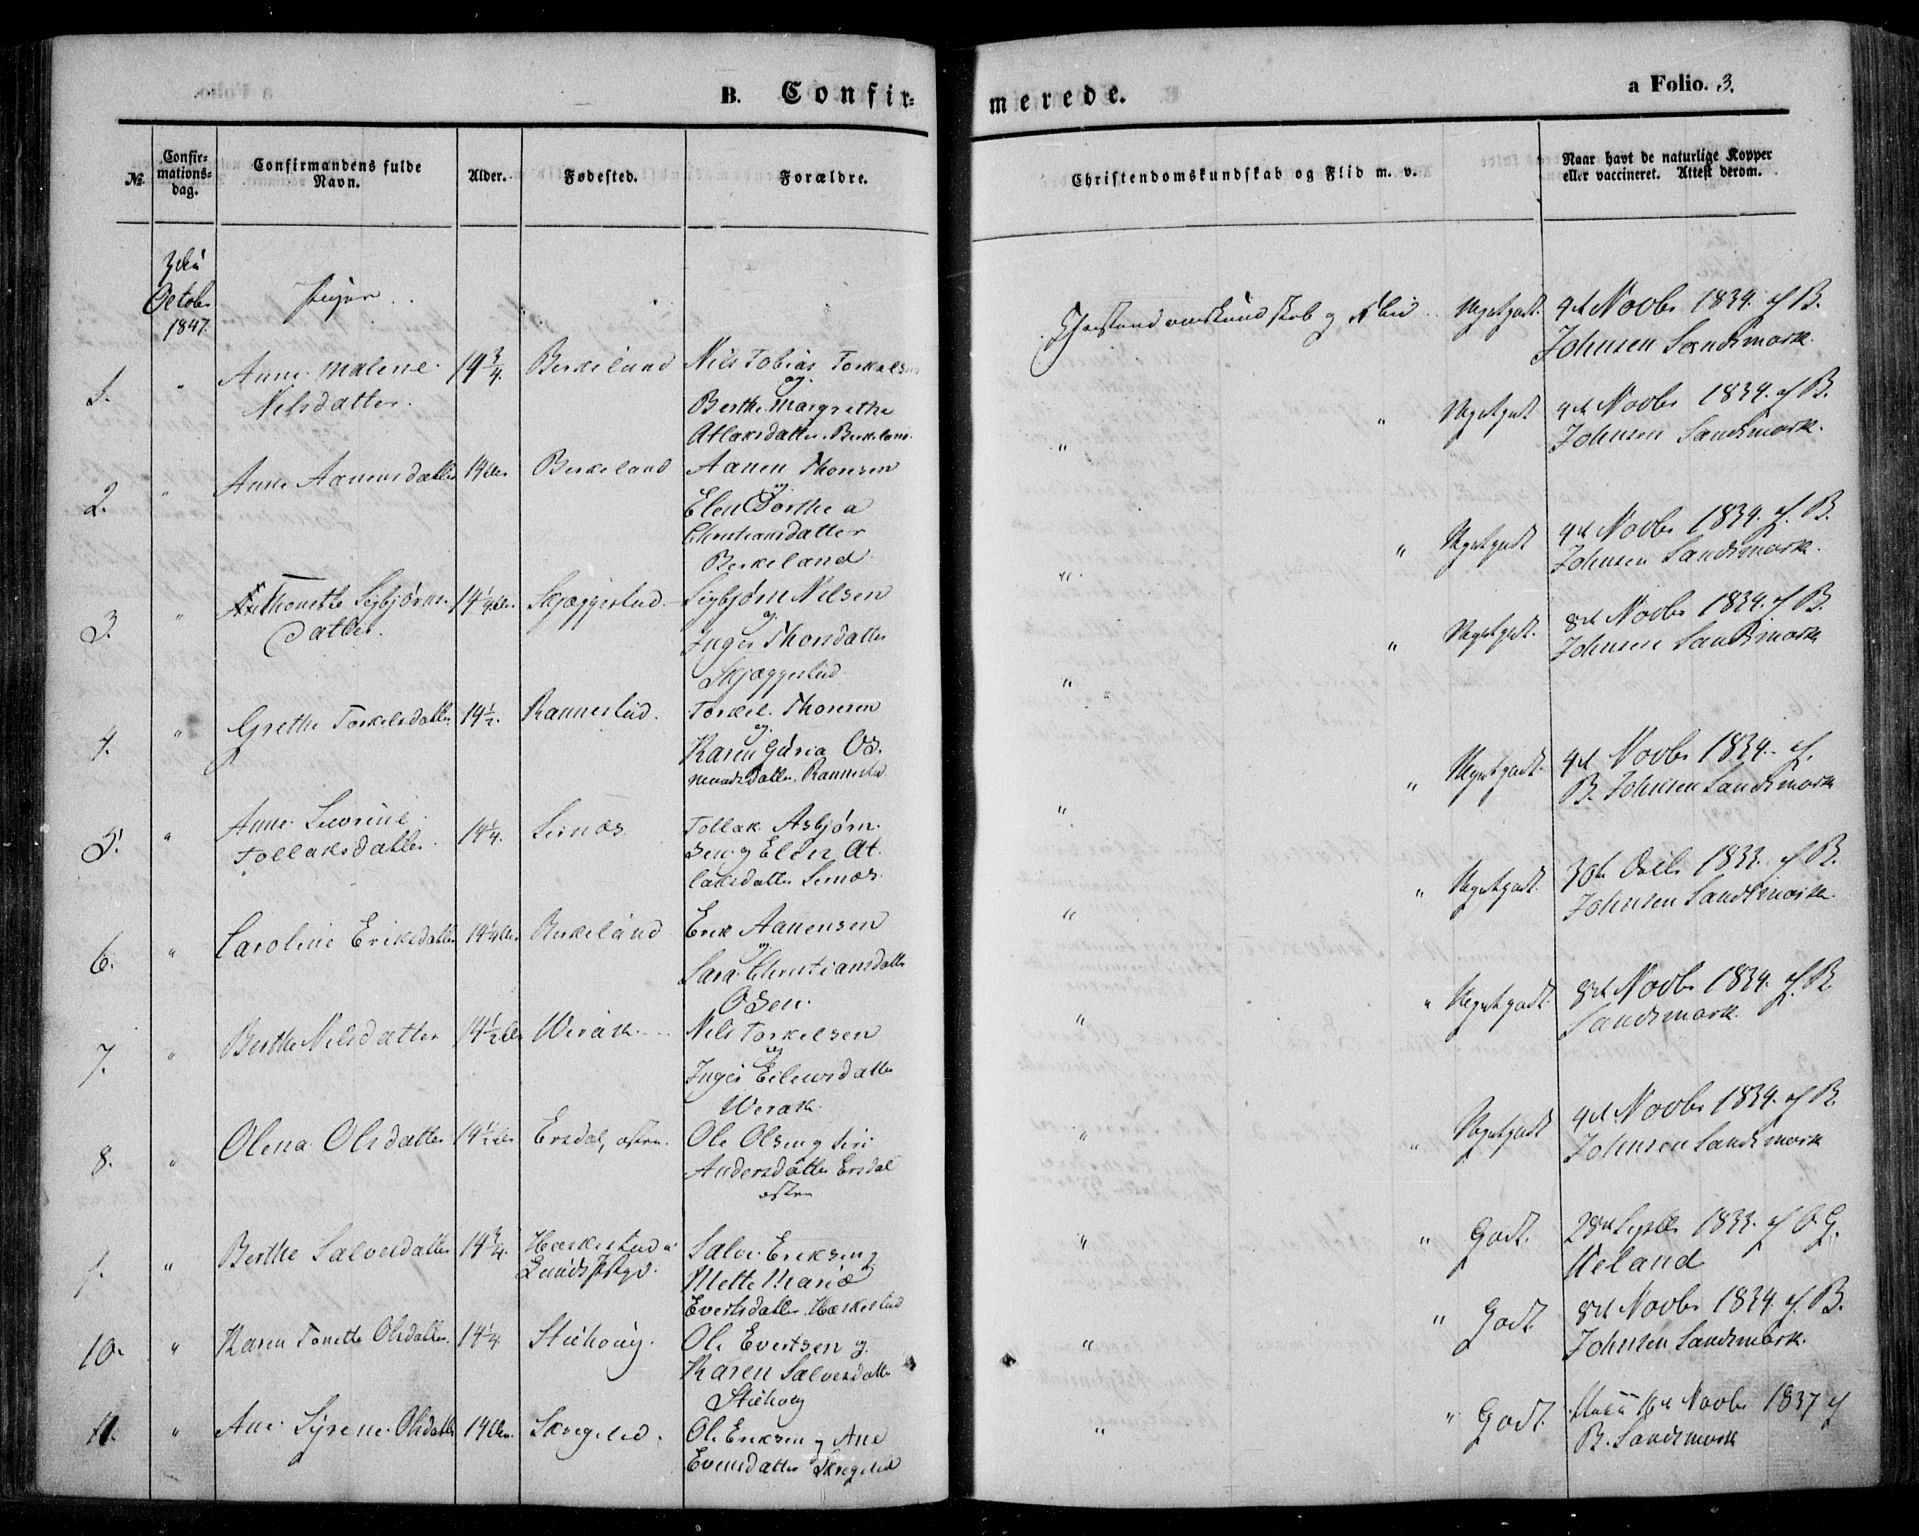 B. Confir-
merede.
a Folio. 3.
No.
Confir-
mations-
dag.
Confirmandens fulde
Navn.
Alder.
Fødested.
Forældre.
Christendomskundskab og Flid m. v.
Naar havt de naturlige Kopper
eller vaccineret. Attest derom.
3die
October
1847.
Piger
1. " Anne Malene
Nilsdatter.
14 3/4.
Birkeland
Nils Tobias Torkelsen
og
Berthe Margrethe
Atlaksdatter Birkeland.
Christendomskundskab og Flid Meget godt.
4de Novbr 1834. af B.
Johnsen Sandsmark.
2. " Anne Aanensdatter
14
Birkeland
Aanen Thorsen
og
Elen Dorthea
Christiansdatter
Birkeland
" " Meget godt
4de Novbr 1834. af B.
Johnsen Sandsmark.
3. " Anthonette Sigbjørns-
datter.
14 1/4
Skjæggestad
Sigbjørn Nilsen
og
Inger Thorsdatter
Skjæggestad
" " Meget godt
4de Novbr 1834. af B.
Johnsen Sandsmark.
4. " Grethe Torkelsdatter
14 1/2.
Rannestad.
Torkel Thorsen
og
Karen Guria Os-
mundsdatter Rannestad
" " Meget godt.
8de Novbr 1834. af B.
Johnsen Sandsmark
5. " Anne Severine
Tollaksdatter.
14 1/4.
Sirnæs
Tollak Asbjørn-
sen og Elen At-
laksdatter Sirnæs.
" " Meget godt
4de Novbr 1834. af
B. Johnsen Sandsmark
6. " Caroline Eriksdatter
14 1/4
Birkeland
Erik Aanensen
og
Sara Christiansdatter
Osen.
" " Meget godt.
30te 1833. af B.
Johnsen Sandsmark.
7. " Berthe Nilsdatter
14 1/2
Wirak
Nils Torkelsen
og
Inger Eilertsdatter
Wirak.
" " Meget godt.
8de Novbr 1834. af B.
Sandsmark.
8. " Olena Olsdatter
14 1/2
Ersdal, østre.
Ole Olsen og Siri
Andersdatter Ersdal
østre
" " Meget godt
4de Novbr 1834. af B.
Johnsen Sandsmark
9. " Berthe Salvesdatter
14 3/4.
Hæskestad i
Lunds Pstgd.
Salve Eriksen og
Mette Marie
Evertsdatter Hæskestad
" " Godt.
28de Septbr 1833. af O. G.
Ueland
10. " Karen Tonette Olsdatter.
14 1/4
Ole Evertsen og
Karen Salvesdatter
" " Godt.
8de Novbr 1834. af B.
Johnsen Sandsmark.
11. " Ane Syrene Olsdatter
14
Skregelid.
Ole Eriksen og Ane
Evensdatter Skregelid
" " Godt.
16de Novbr 1837 af
B. Sandsmark